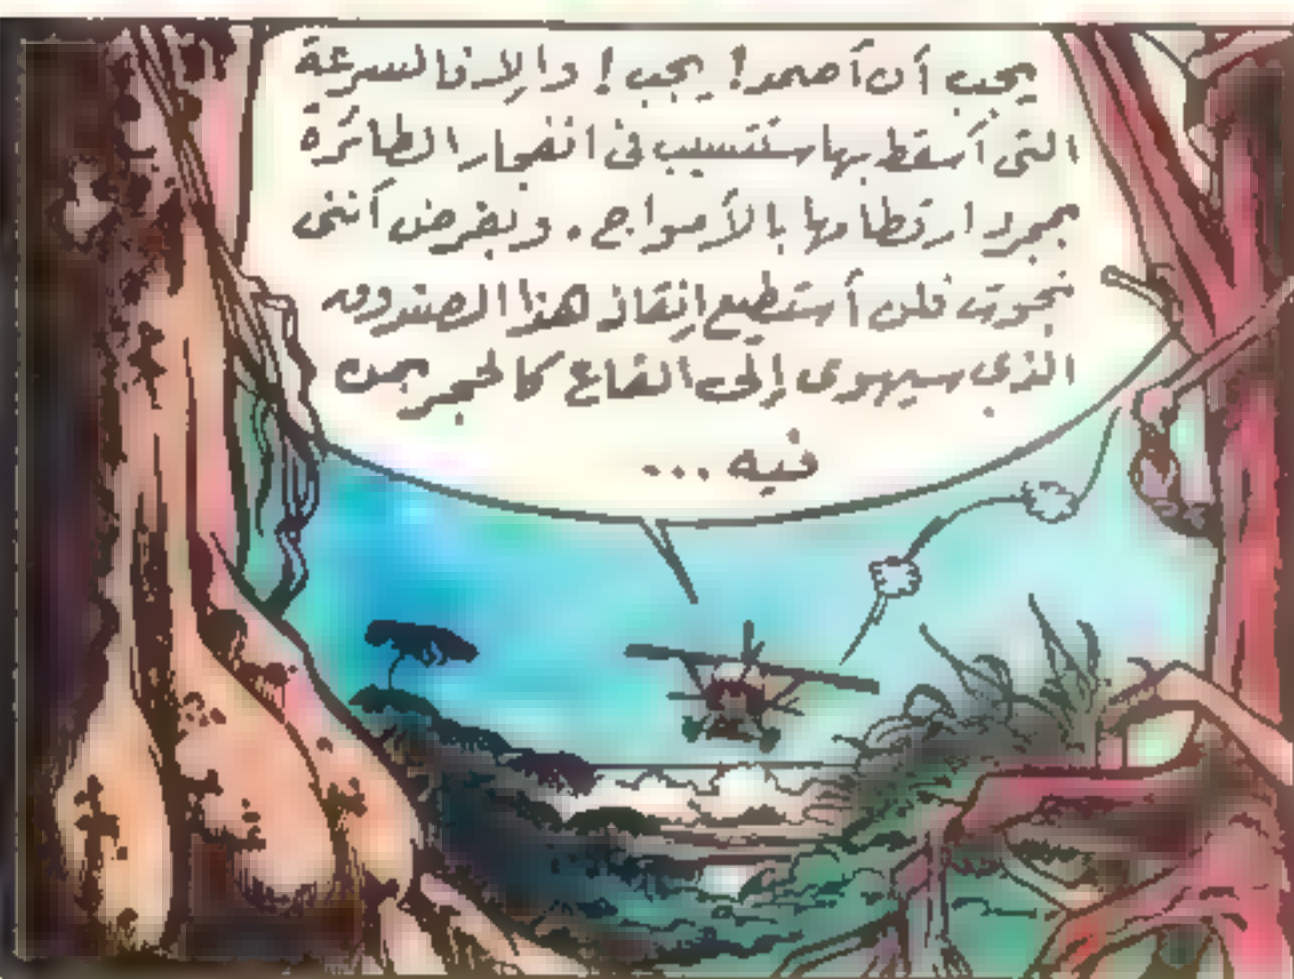 يجب أن أصمد! يجب! وإلا فالسرعة
التى أسقط بها ستتسبب فى انفجار الطائرة
بمجرد ارتطامها بالأمواج. وبفرض أننى
نجوت فلن أستطيع إنقاذ هذا الصندوق
الذى سيهوى إلى القاع كالحجر بمن
فيه ...